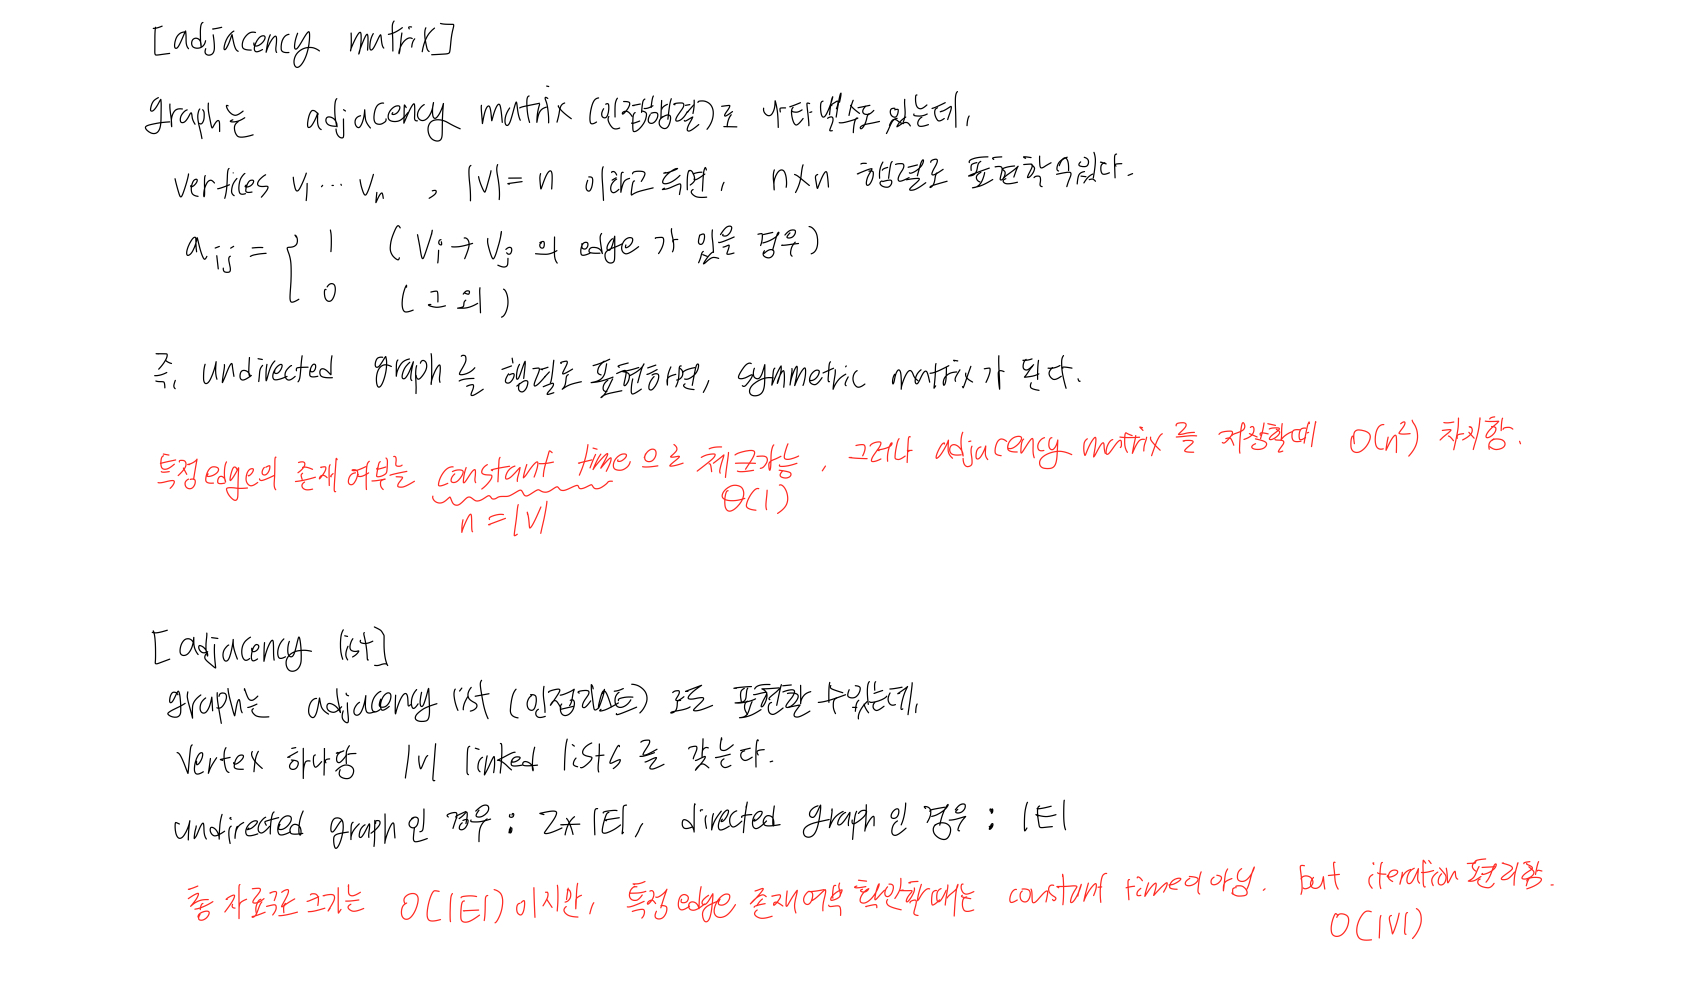 [adjacency matrix]
graph는 adjacency matrix (인접행렬)로 나타낼수도 있는데,
vertices v₁ ··· vₙ , |V| = n 이라고 두면, n×n 행렬로 표현할 수 있다.
a ij = { 1 ( Vi → Vj 의 edge 가 있을 경우 )
0 ( 그 외 )
즉, undirected graph 를 행렬로 표현하면, symmetric matrix가 된다.
특정 edge의 존재 여부는 constant time 으로 체크가능, 그러나 adjacency matrix 를 저장할때 O(n²) 차지함.
n = |V| Θ(1)
[adjacency list]
graph는 adjacency list (인접리스트) 로도 표현할 수 있는데,
Vertex 하나당 |V| linked lists 를 갖는다.
undirected graph 인 경우 : 2* |E|, directed graph 인 경우 : |E|
총 자료구조 크기는 O(|E|) 이지만, 특정 edge 존재여부 확인할때는 constant time이 아님. but iteration 편리함.
O(|V|)